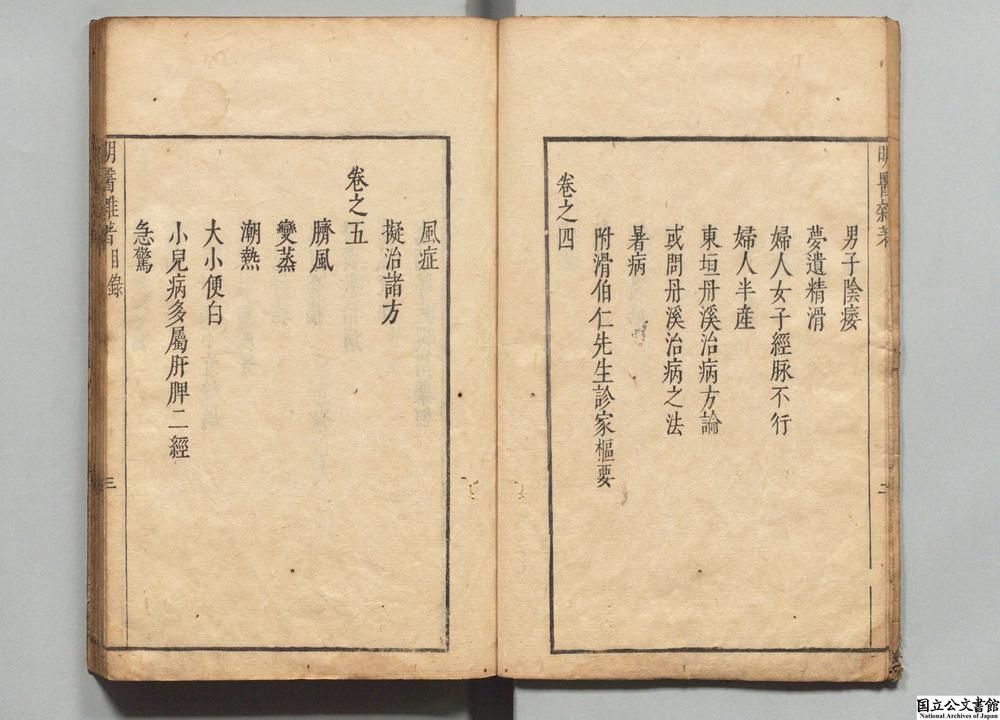 明醫雜著
男子陰痿
夢遺精滑
婦人女子經脉不行
婦人半産
東垣丹溪治病方論
或問丹溪治病之法
暑病
附滑伯仁先生診家樞要
卷之四
二
風症
擬治諸方
卷之五
臍風
變蒸
潮熱
大小便白
小兒病多屬肝脾二經
急驚
明醫雜著目錄
三
国立公文書館
National Archives of Japan